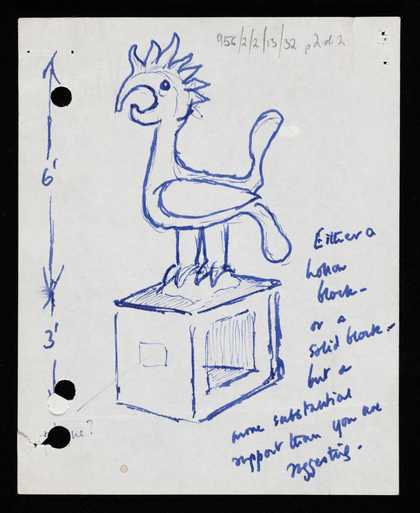 956/2/2/13/32 p2 of 2
6'
3'
Either a
hollow
block -
or a
solid block -
but a
more substantial
support than you are
suggesting.